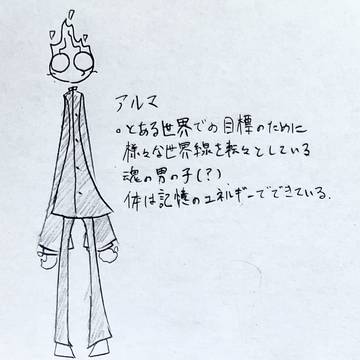 アルマ
。とある世界での目標のために
様々な世界線を転々としている
魂の男の子(?)
体は記憶のエネルギーでできている.